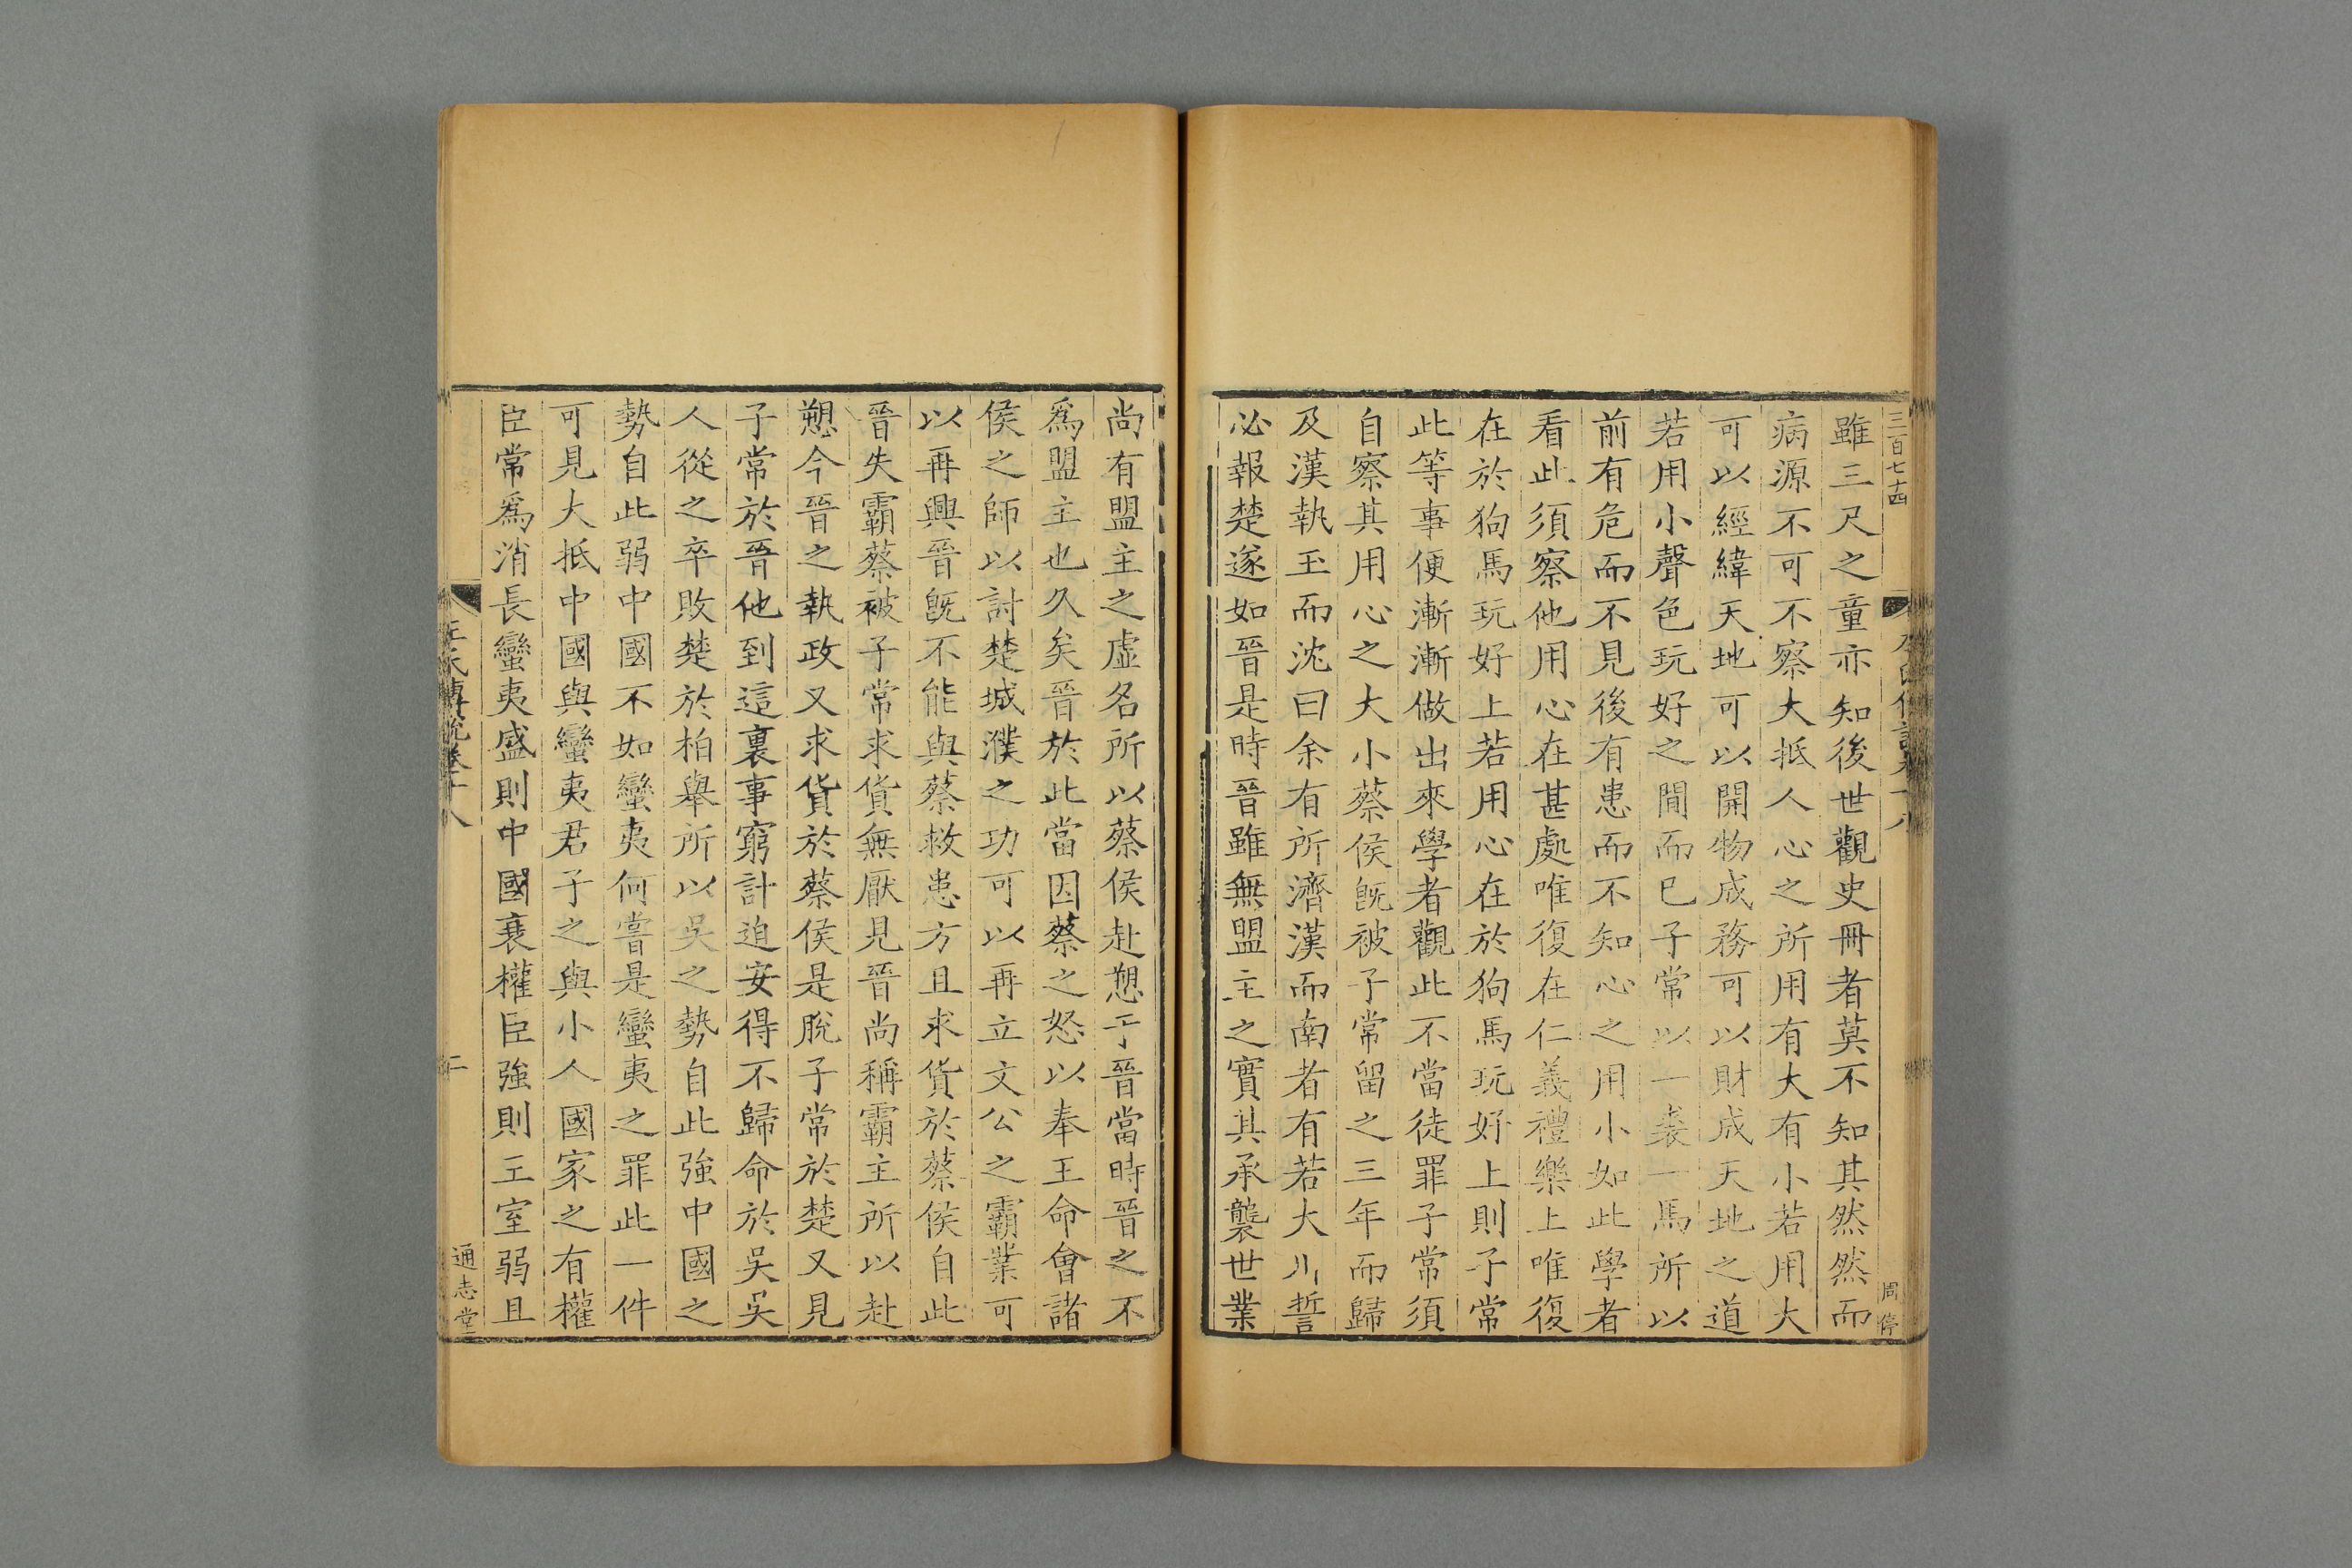 三百七十四
雖三尺之童亦知後世觀史冊者莫不知其然然而
病源不可不察大抵人心之所用有大有小若用大
可以經緯天地可以開物成務可以財成天地之道
若用小聲色玩好之間而已子常以一裘一馬所以
前有危而不見後有患而不知心之用小如此學者
看此須察他用心在甚處唯復在仁義禮樂上唯復
在於狗馬玩好上若用心在於狗馬玩好上則子常
此等事便漸漸做出來學者觀此不當徒罪子常須
自察其用心之大小蔡侯旣被子常留之三年而歸
及漢執玉而沈曰余有所濟漢而南者有若大川誓
必報楚遂如晉是時晉雖無盟主之實其承襲世業
尚有盟主之虛名所以蔡侯赴愬于晉當時晉之不
爲盟主也久矣晉於此當因蔡之怒以奉王命會諸
侯之師以討楚城濮之功可以再立文公之霸業可
以再興晉旣不能與蔡救患方且求貨於蔡侯自此
晉失霸蔡被子常求貨無厭見晉尚稱霸主所以赴
愬今晉之執政又求貨於蔡侯是脫子常於楚又見
子常於晉他到這裏事窮計迫安得不歸命於吳吳
人從之卒敗楚於柏舉所以吳之勢自此強中國之
勢自此弱中國不如蠻夷何嘗是蠻夷之罪此一件
可見大抵中國與蠻夷君子之與小人國家之有權
臣常爲消長蠻夷盛則中國衰權臣強則王室弱且
左氏傳說卷十八
通志堂